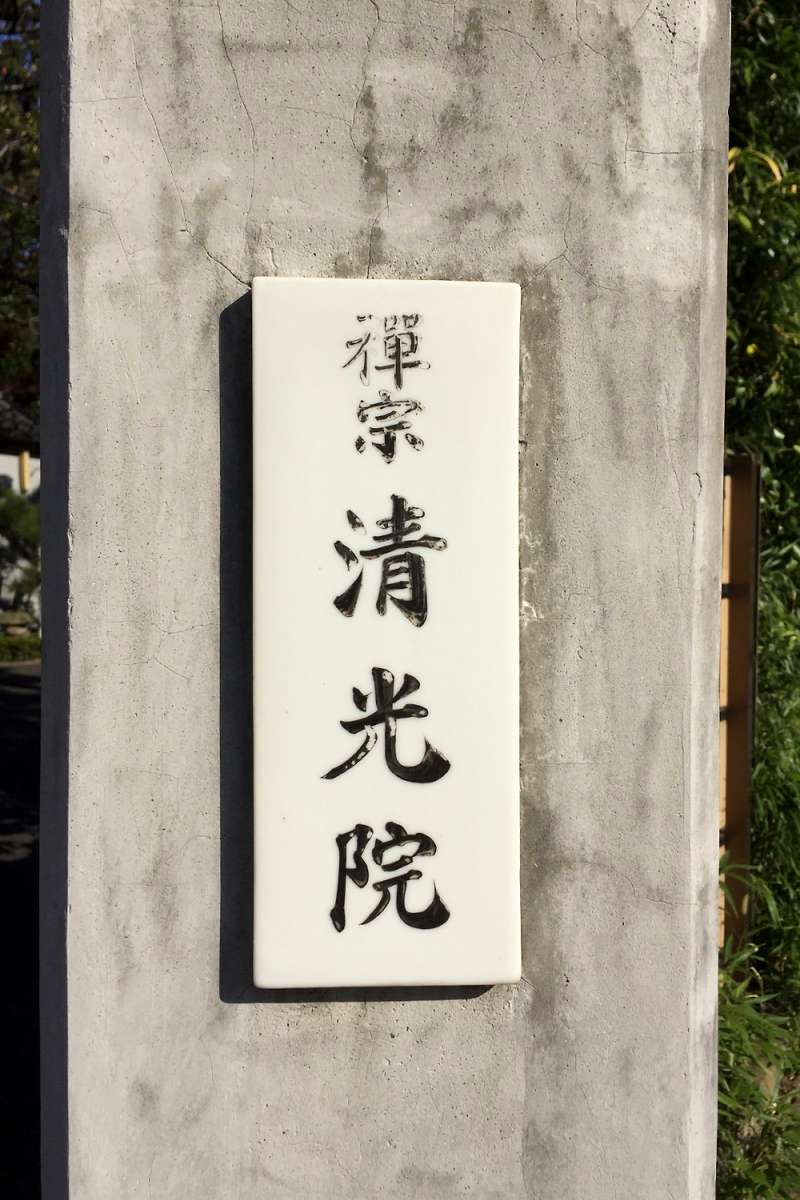 禪宗 清光院